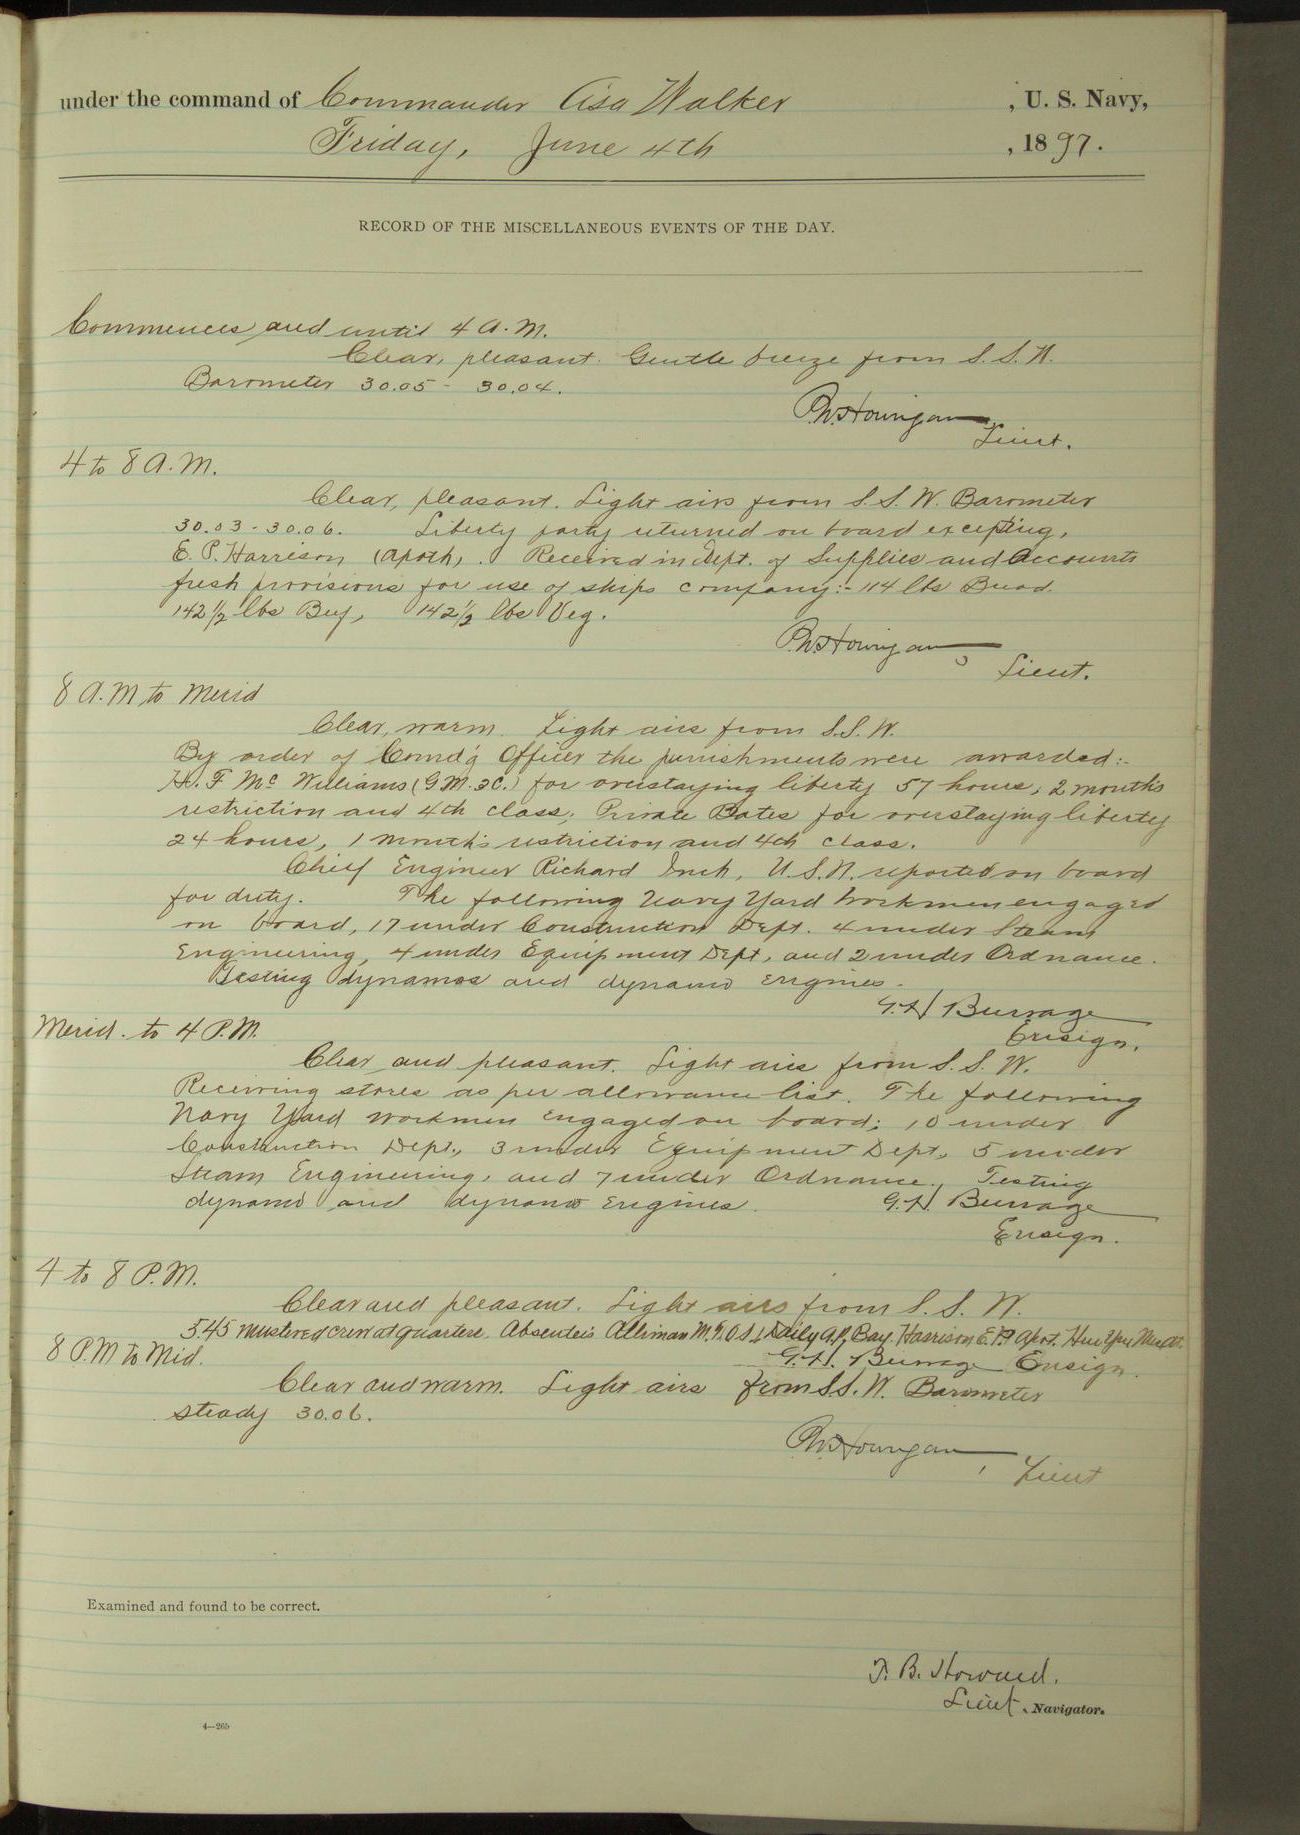 under the command of Commander Asa Walker , U. S. Navy,
Friday, June 4th , 1897.
RECORD OF THE MISCELLANEOUS EVENTS OF THE DAY.
Commences and until 4 A.M.
Clear, pleasant. Gentle breeze from S.S.W.
Barometer 30.05 - 30.04.
P.W. Hourigan
Lieut.
4 to 8 A.M.
Clear, pleasant. Light airs from S.S.W. Barometer
30.03 - 30.06. Liberty party returned on board excepting,
E.P. Harrison (Apoth). Received in Dept. of Supplies and Accounts
fresh provisions for use of ships company:- 114 lbs Bread.
142 1/2 lbs Beef, 142 1/2 lbs Veg.
P.W. Hourigan,
Lieut.
8 A.M to Merid
Clear, warm. Light airs from S.S.W.
By order of Comd'g Officer the punishments were awarded:-
H. F Mc Williams (G.M. 3C.) for overstaying liberty 57 hours, 2 months
restriction and 4th class; Private Bates for overstaying liberty
24 hours, 1 month's restriction and 4th class.
Chief Engineer Richard Inch, U.S.N. reported on board
for duty. The following Navy Yard workmen engaged
on board, 17 under Construction Dept. 4 under Steam
Engineering, 4 under Equipment Dept, and 2 under Ordnance.
Testing dynamos and dynamo engines.
G.H Burrage
Ensign.
Merid. to 4 P.M.
Clear and pleasant. Light airs from S.S.W.
Receiving stores as per allowance list. The following
Navy Yard workmen engaged on board; 10 under
Construction Dept., 3 under Equipment Dept, 5 under
Steam Engineering, and 7 under Ordnance. Testing
dynamo and dynamo engines. G.H. Burrage
Ensign.
4 to 8 P.M.
Clear and pleasant. Light airs from S.S.W.
5.45 mustered crew at quarters. Absentees Alliman M.F. O.S, Daily A.P, Bay. Harrison E.P. Apot. Mess At.
G.H. Burrage Ensign.
8 P.M to Mid.
Clear and warm. Light airs from S.S.W. Barometer
steady 30.06.
P.W. Hourigan,
Lieut
Examined and found to be correct.
F. B. Howard.
Lieut, Navigator.
4—265